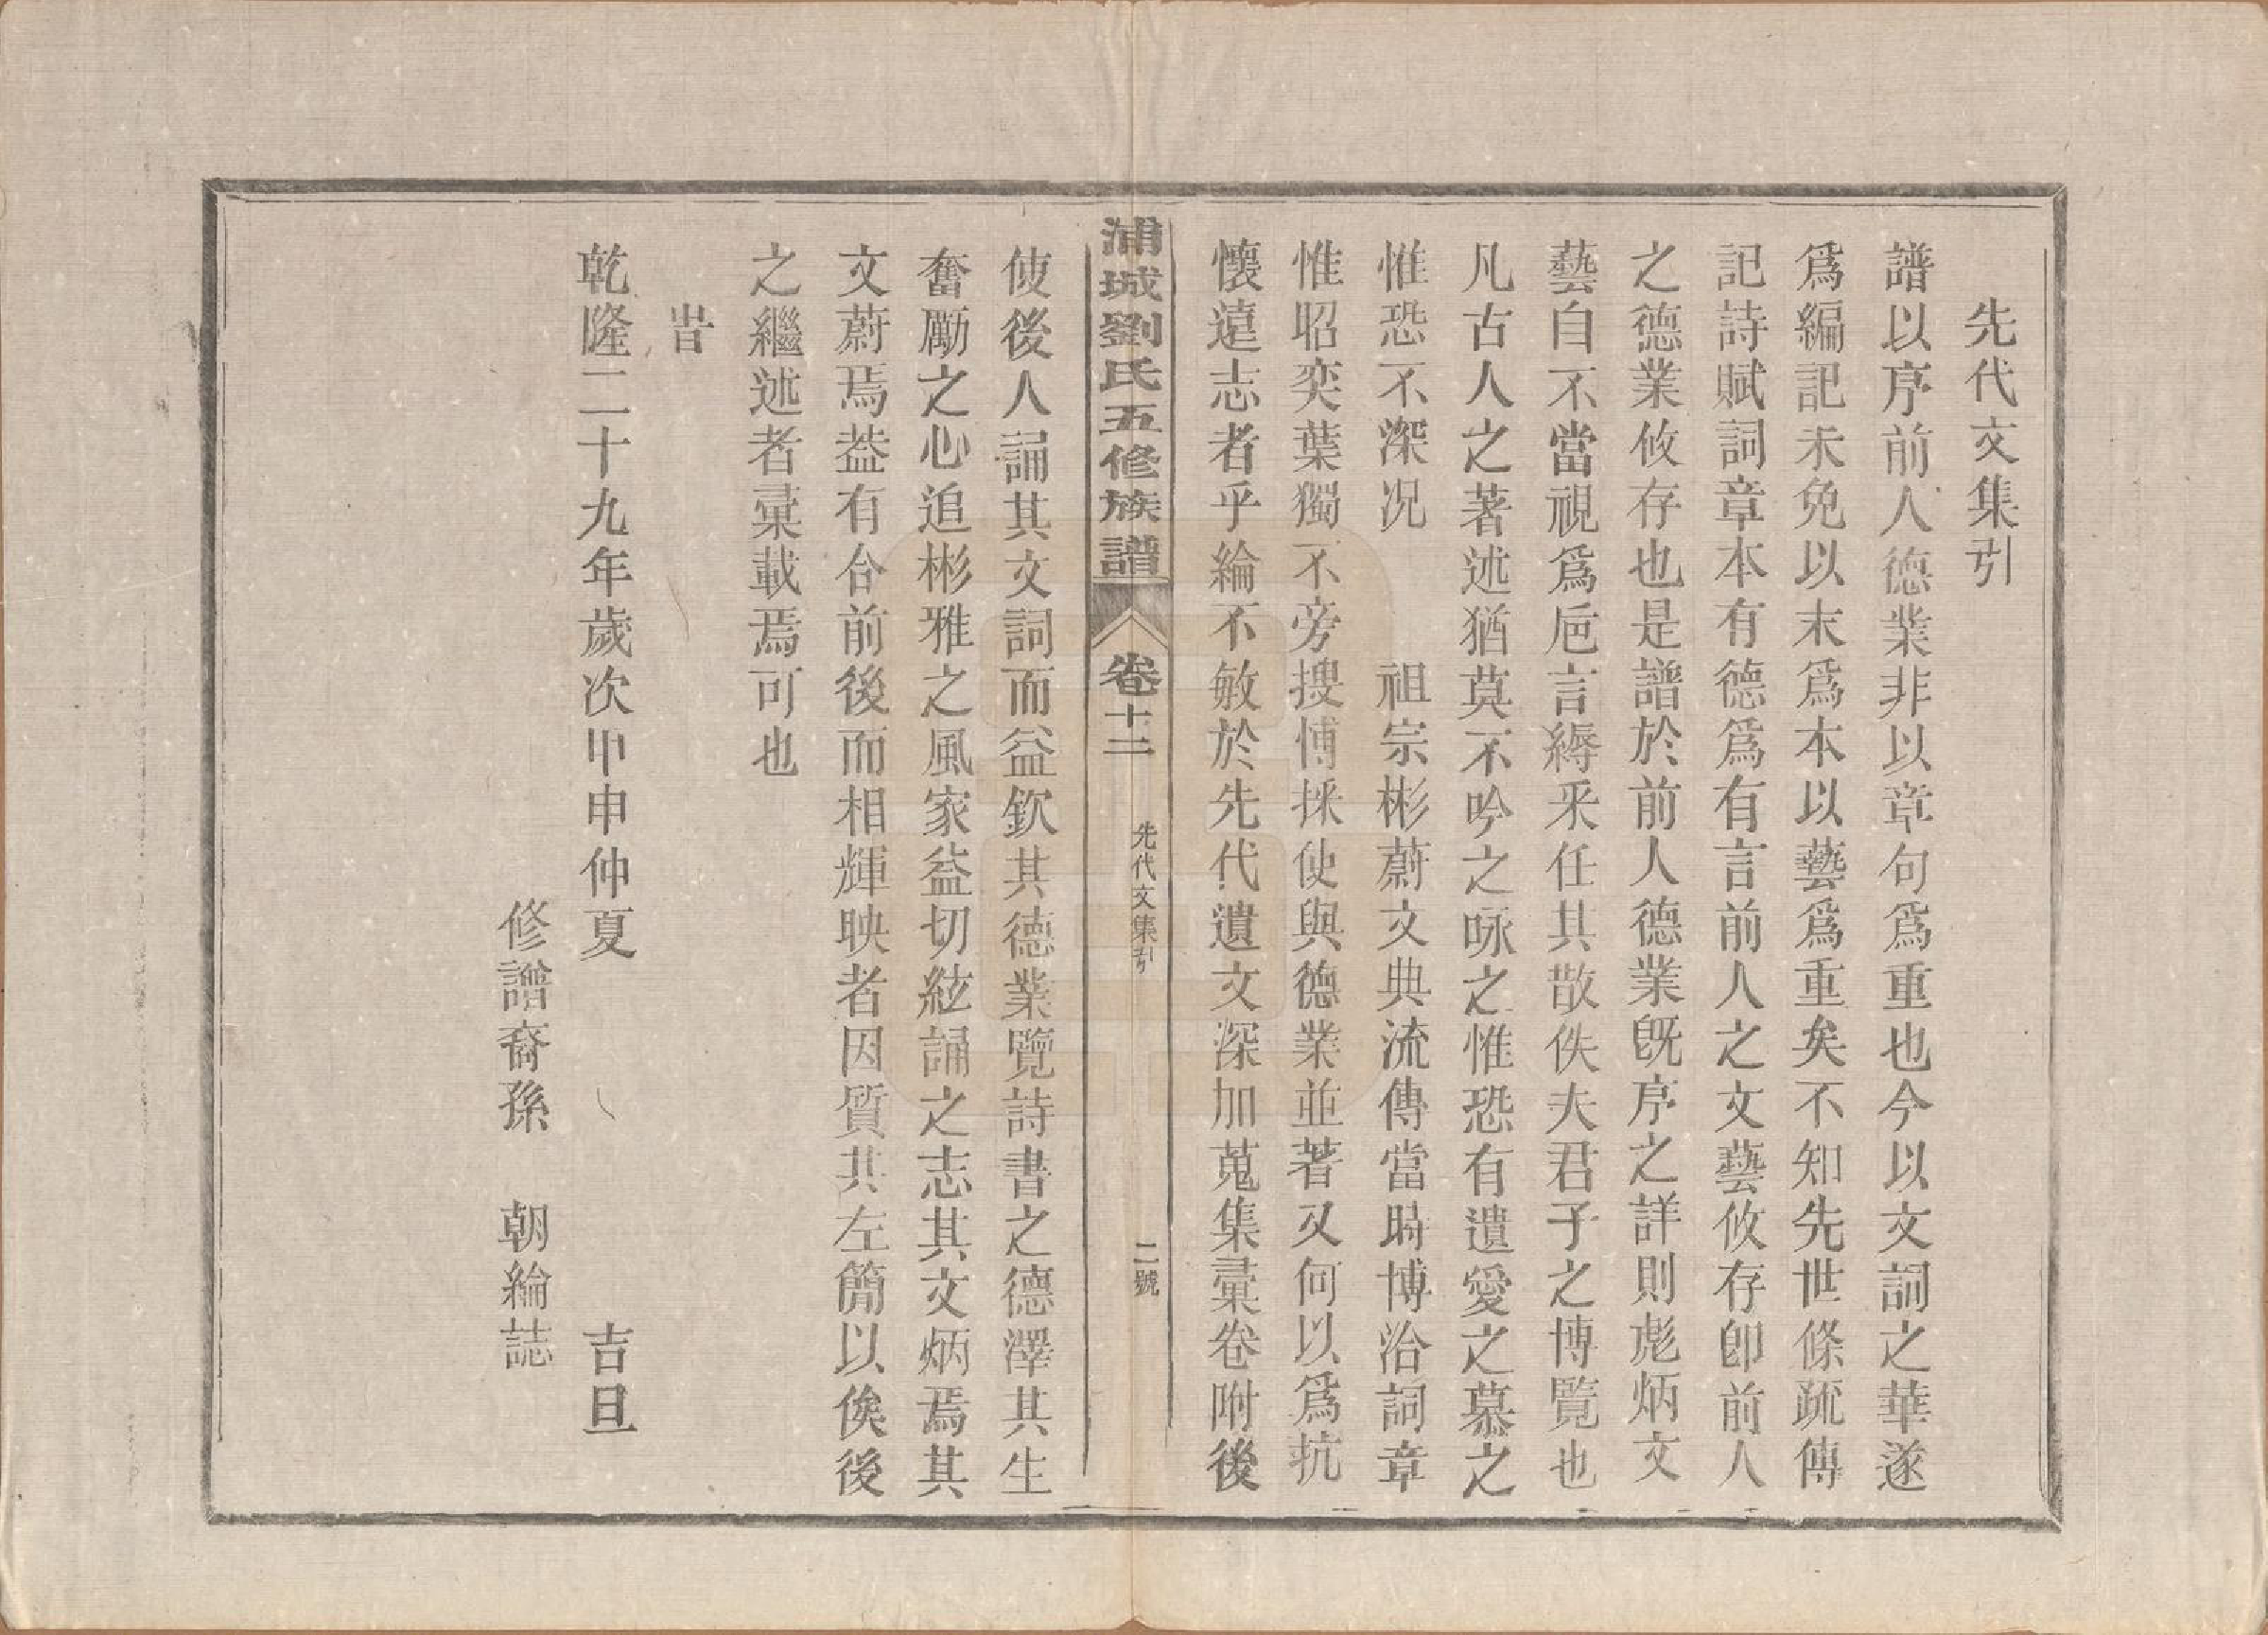 先代文集引
譜以序前人德業非以章句爲重也今以文詞之華遂
爲編記未免以末爲本以藝爲重矣不知先世條疏傳
記詩賦詞章本有德爲有言前人之文藝攸存卽前人
之德業攸存也是譜於前人德業旣序之詳則彪炳文
藝自不當視爲巵言縟采任其散佚夫君子之博覽也
凡古人之著述猶莫不吟之咏之惟恐有遺愛之慕之
惟恐不深况 祖宗彬蔚文典流傳當時博洽詞章
惟昭奕葉獨不旁搜博採使與德業並著又何以爲抗
懷遠志者乎綸不敏於先代遺文深加蒐集彚卷附後
浦城劉氏五修族譜 卷十二 先代文集引 二號
使後人誦其文詞而益欽其德業覽詩書之德澤其生
奮勵之心追彬雅之風家益切絃誦之志其文炳焉其
文蔚焉益有合前後而相輝映者因質其左簡以俟後
之繼述者彚載焉可也
旹
乾隆二十九年歲次甲申仲夏 吉旦
修譜裔孫 朝綸誌